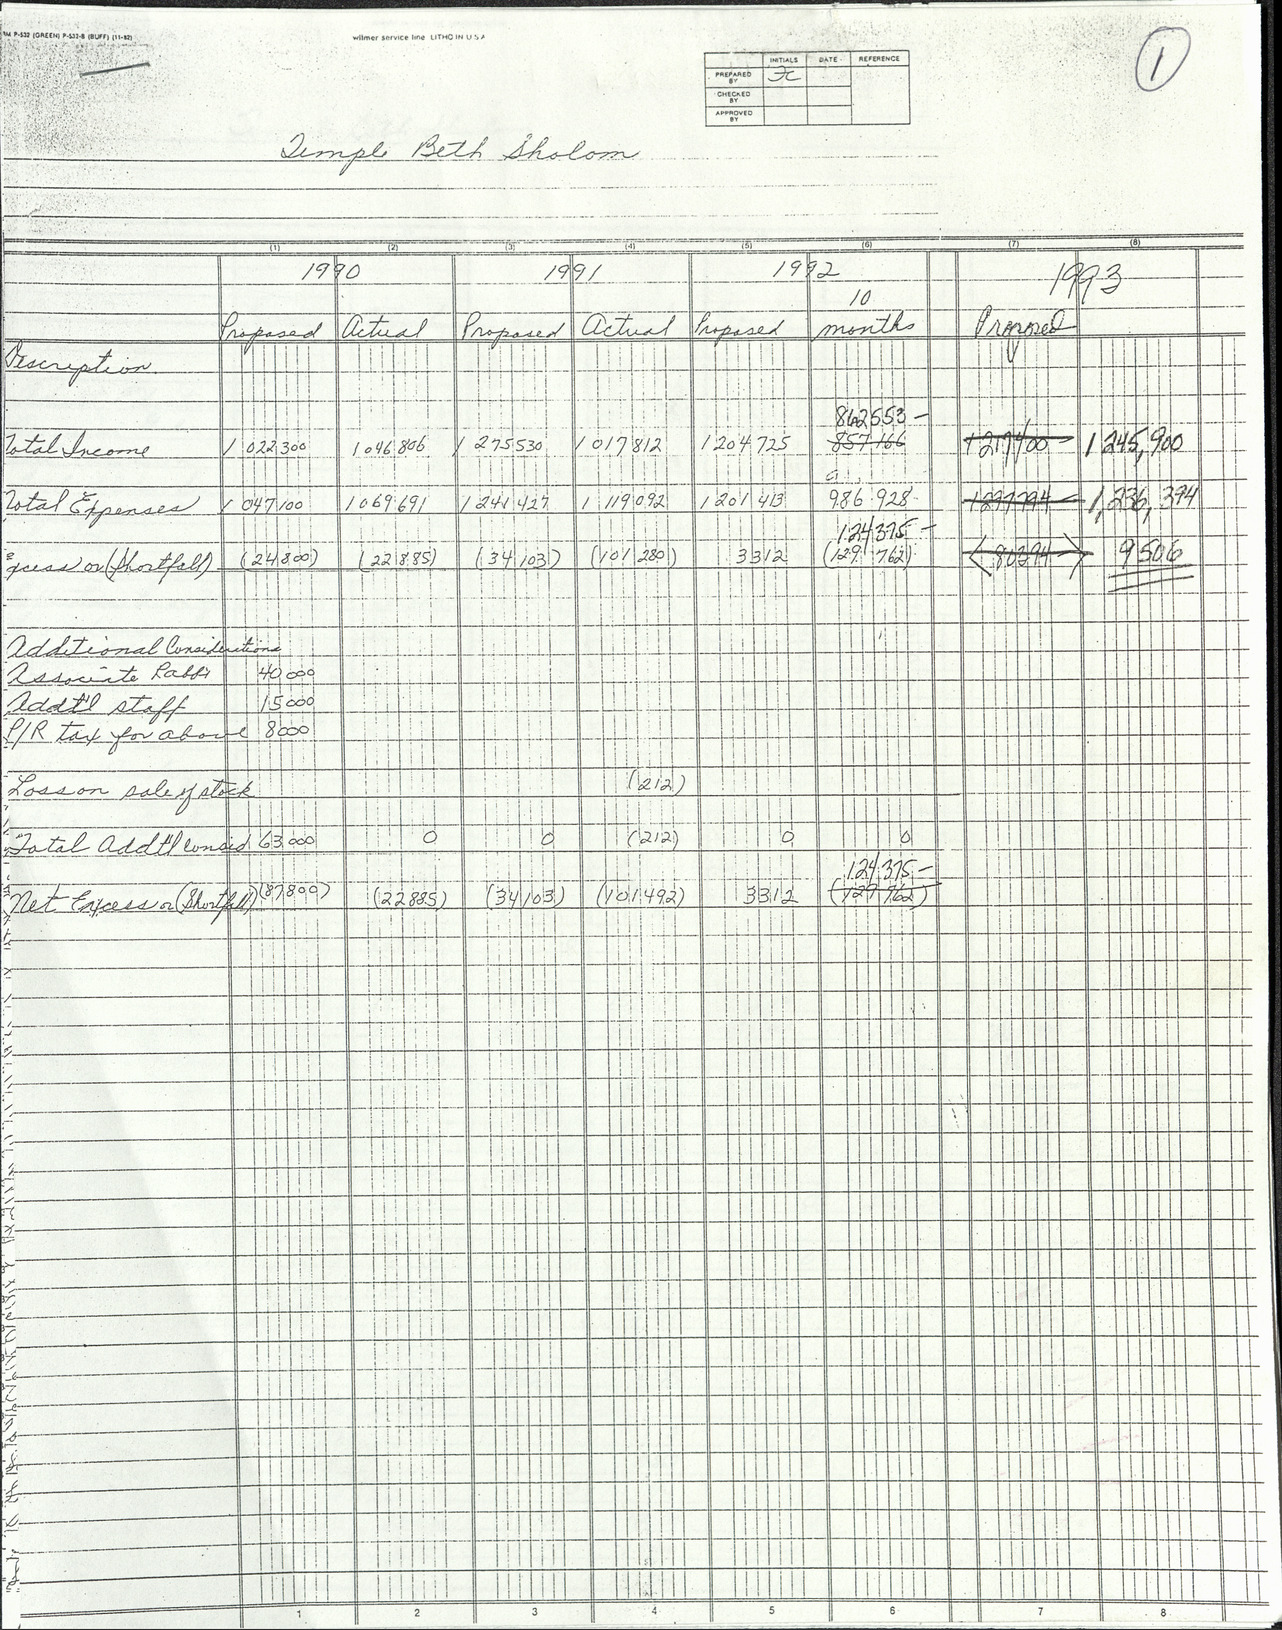 RM P-532 (GREEN) P-532-B (BUFF) (11-82)
wilmer service line LITHO IN U S A
1
INITIALS DATE REFERENCE
PREPARED BY
CHECKED BY
APPROVED BY
Temple Beth Sholom
(1) (2) (3) (4) (5) (6) (7) (8)
1990 1991 1992 1993
10
Proposed Actual Proposed Actual Proposed months Proposed
Description
862553 -
Total Income 1 022 300 1 046 806 1 275 530 1 017 812 1 204 725 857 166 1 217 400 1,245,900
Total Expenses 1 047 100 1 069 691 1 241 427 1 119 092 1 201 413 986 928 1 297 794 1,236,394
124375 -
Excess or (Shortfall) (24 800) (22 885) (34 103) (101 280) 3312 (129 762) <80394> 9506
Additional Considerations
Associate Rabbi 40 000
Addt'l staff 15 000
P/R tax for above 8000
Loss on sale of stock (212)
Total Addt'l consid 63 000 0 0 (212) 0 0
124375 -
Net Excess or (Shortfall) (87800) (22885) (34103) (101492) 3312 (129 762)
1 2 3 4 5 6 7 8